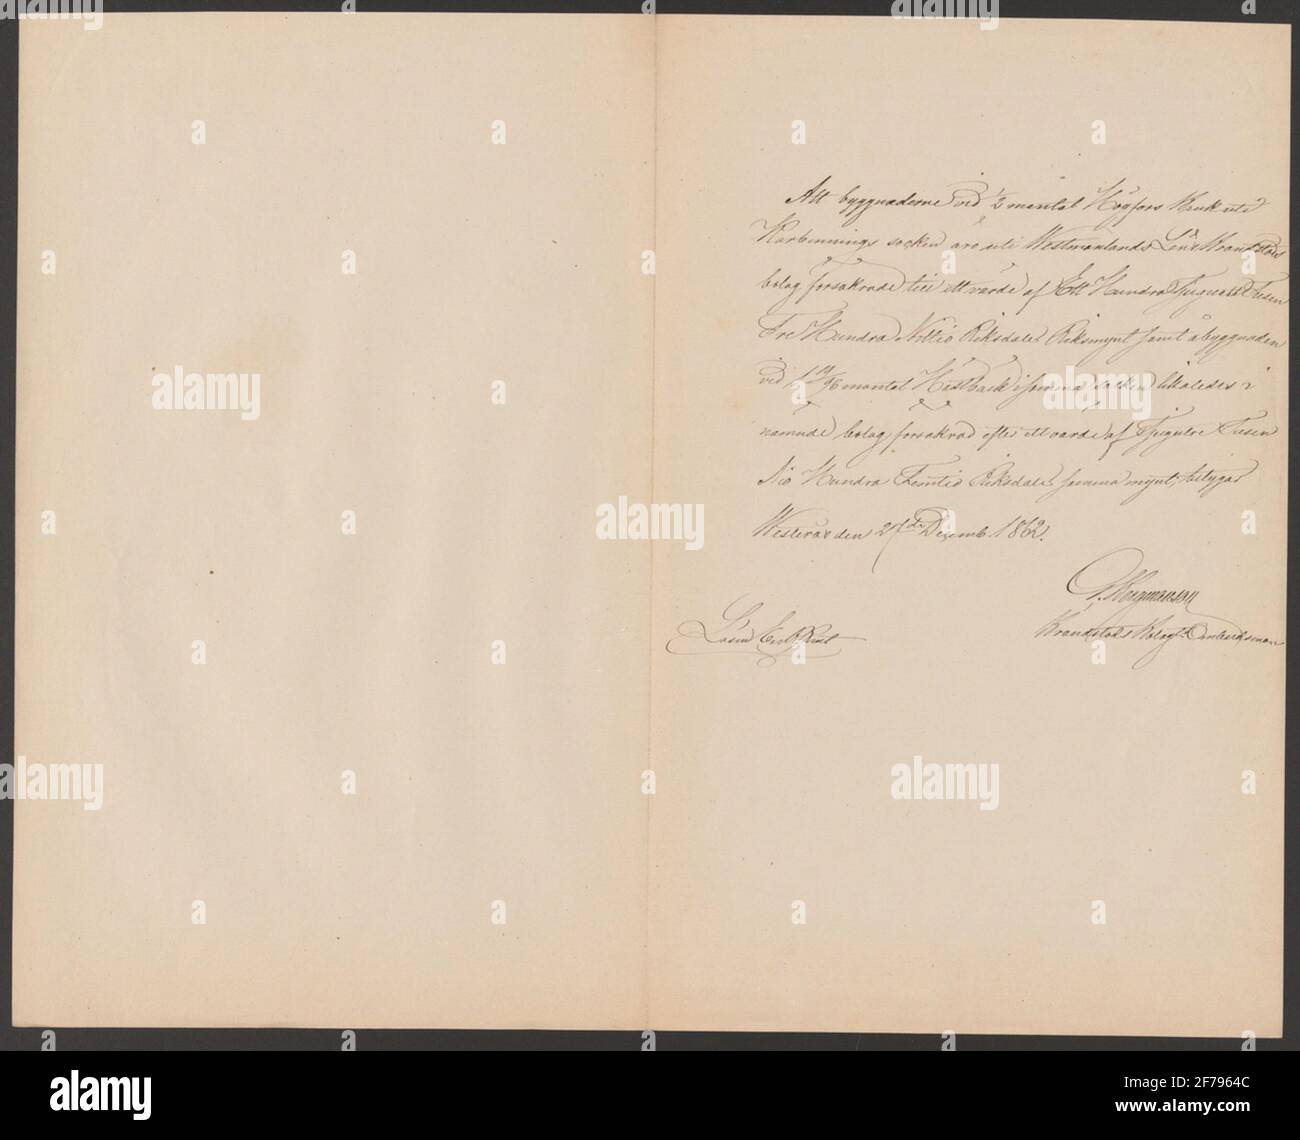 Att byggnaderne vid 1/2 mantal Högfors Bruk uti
Karbennings socken äro uti Westmanlands Läns Brandstods
bolag försäkrade till ett värde af Ett Hundra Tjuguett Tusen
Tre Hundra Nittio Riksdaler Riksmynt samt åbyggnaden
vid mantal i samma socken likaledes i
nämnde bolag försäkrad efter ett värde af Tjugutre Tusen
Nio Hundra Femtio Riksdaler samma mynt, betygar
Westerås den Decemb. 1862.
Brandstods Bolagets Ombudsman
alamy
Image ID: 2F7964C
www.alamy.com